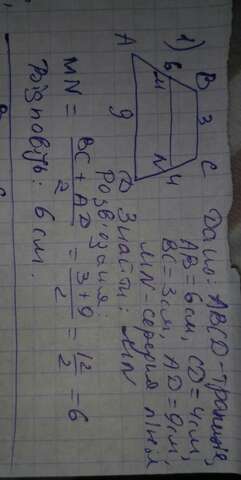 1)
A 6 B
M
9 3
N
D 4 C
Дано: ABCD-трапеція,
AB=6см, CD=4см,
BC=3см, AD=9см,
MN-середня лінія
Знайти: MN
Розв'язання:
MN = BC+AD/2 = 3+9/2 = 12/2 = 6
Відповідь: 6 см.